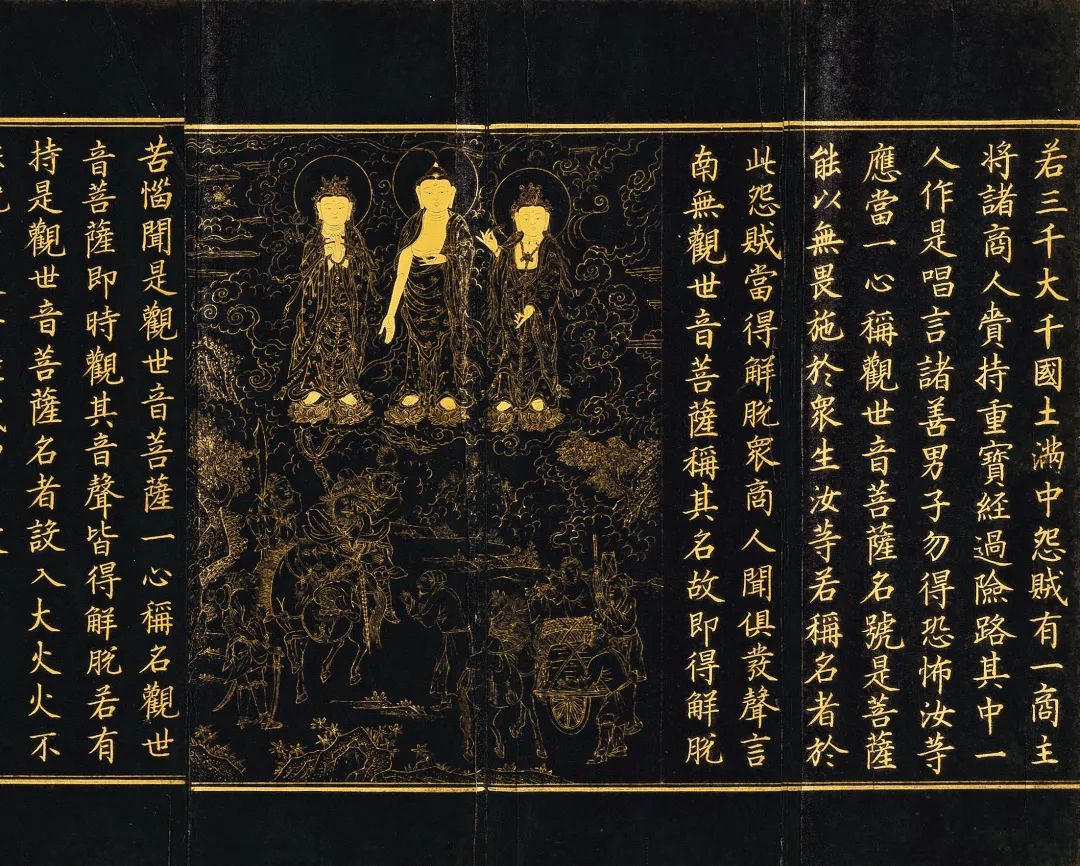 若三千大千國土滿中怨賊有一商主
将諸商人賷持重寶經過險路其中一
人作是唱言諸善男子勿得恐怖汝等
應當一心稱觀世音菩薩名號是菩薩
能以無畏施於衆生汝等若稱名者於
此怨賊當得解脫衆商人聞俱發聲言
南無觀世音菩薩稱其名故即得解脫
苦惱聞是觀世音菩薩一心稱名觀世
音菩薩即時觀其音聲皆得解脫若有
持是觀世音菩薩名者設入大火火不